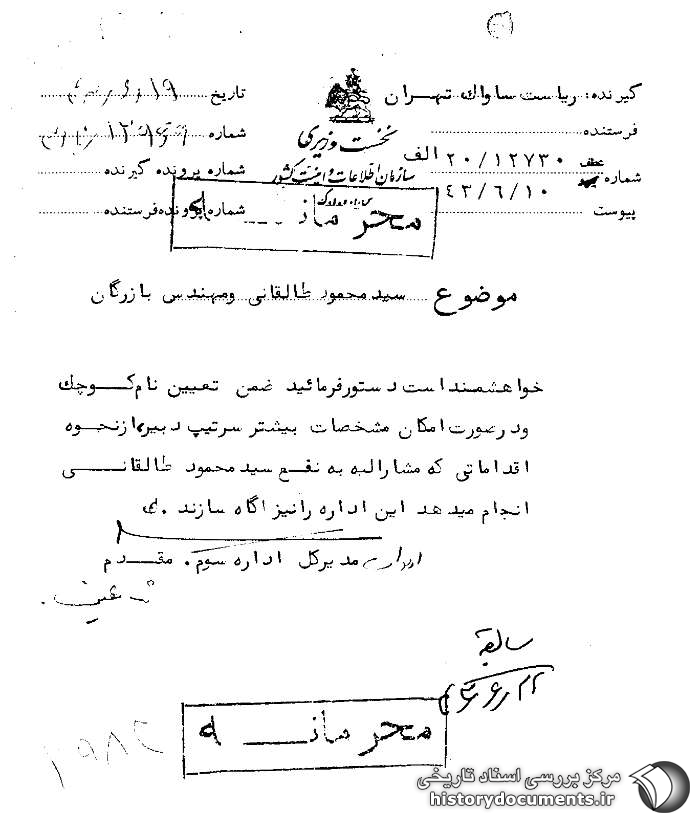 گیرنده: ریاست ساواک تهران
فرستنده
عطف
شماره ۲۰/۱۲۷۳۰ الف
۴۳/۶/۱۰
پیوست
نخست وزیری
سازمان اطلاعات و امنیت کشور
تاریخ
شماره
شماره پرونده گیرنده
شماره پرونده فرستنده
محرمانه
موضوع سید محمود طالقانی و مهندس بازرگان
خواهشمند است دستور فرمائید ضمن تعیین نام کوچک
و در صورت امکان مشخصات بیشتر سرتیپ دبیری از نحوه
اقداماتی که مشارالیه به نفع سید محمود طالقانی
انجام میدهد این اداره را نیز آگاه سازند.
مدیرکل اداره سوم. مقدم
سابقه
محرمانه
مرکز بررسی اسناد تاریخی
historydocuments.ir